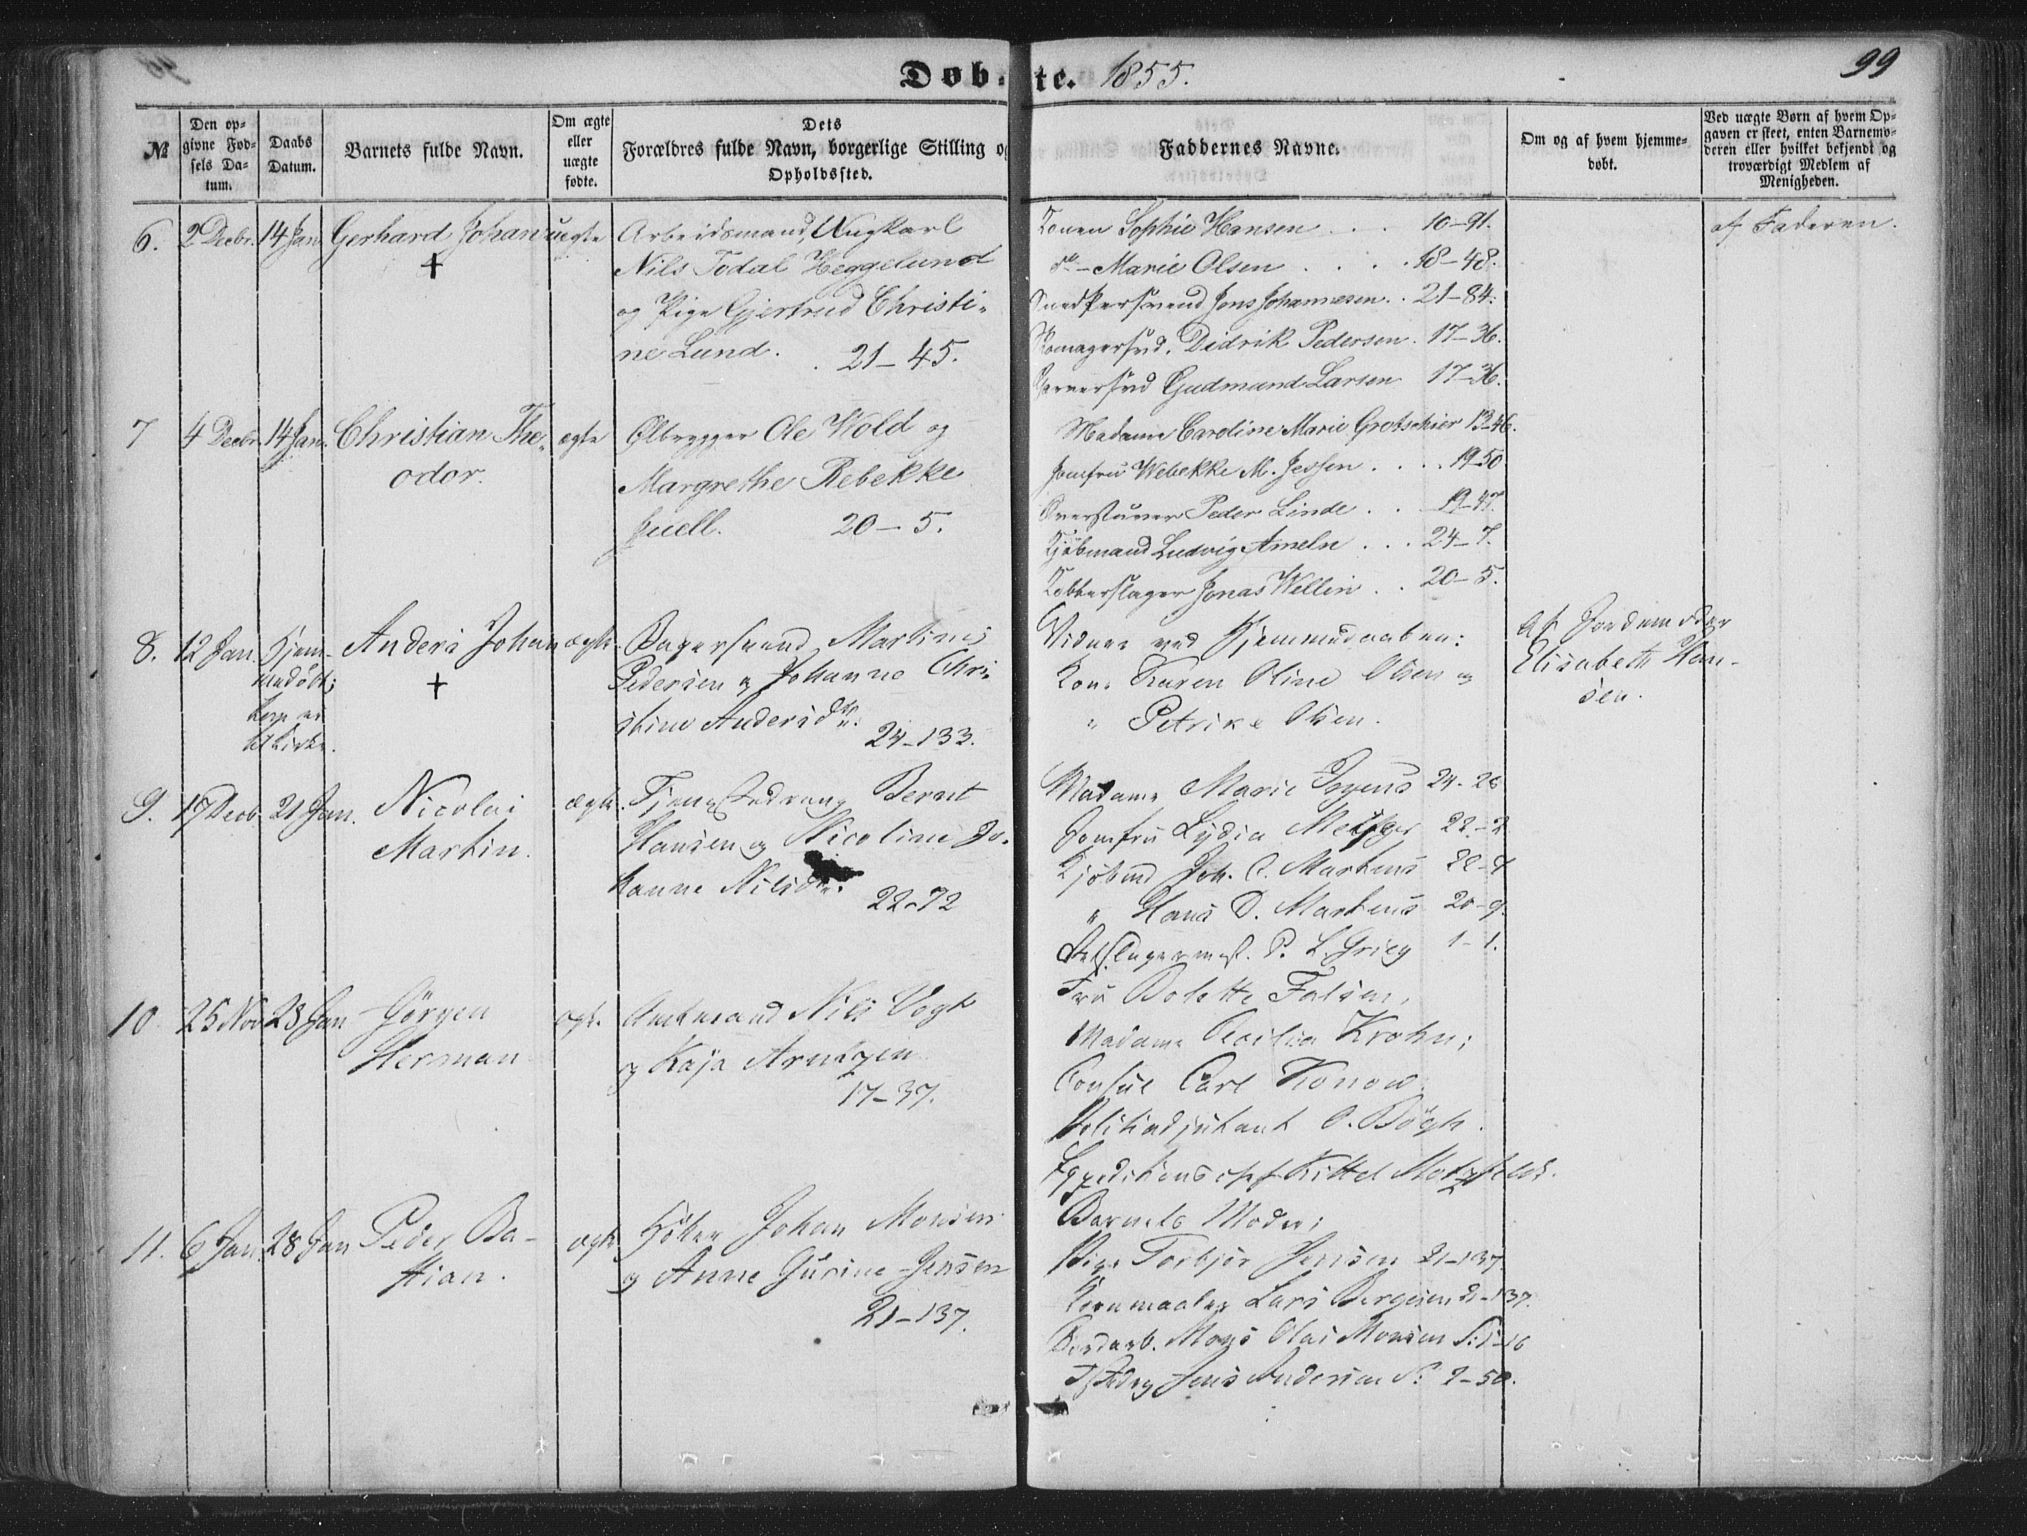 Døbte. 1855.
99
№
Den opgivne Fødsels Datum.
Daabs Datum.
Barnets fulde Navn.
Om ægte eller uægte fødte.
Dets Forældres fulde Navn, borgerlige Stilling og Opholdssted.
Faddernes Navne.
Om og af hvem hjemmedøbt.
Ved uægte Børn af hvem Opgaven er skeet, enten Barnemoderen eller hvilket bekjendt og troværdigt Medlem af Menigheden.
6. 2 Decbr. 14 Jan Gerhard Johan uægte
+
Arbeidsmand, Ungkarl
Nils Todal Heggelund
og Pige Gjertrud Christi-
ne Lund. 21-45.
Konen Sophie Hansen . . . 10-91.
do - Marie Olsen . . . . 18-48.
Snedkersvend Jens Johannesen . . 21-84.
Skomagersvd. Didrik Pedersen . 17-36.
Garversvd Gudmund Larsen 17-36.
af Faderen.
7 4 Decbr. 14 Jan. Christian The-
odor.
ægte
Ølbrygger Ole Wold og
Margrethe Rebekke
Juell. 20-5.
Madame Caroline Marie Grotschier 13-46.
Jomfru Webekke M. Jessen . . . . 19-50
Peder Linde . . . 19-47.
Kjøbmand Ludvig Ameln . . . 24-7.
Kobberslager Jonas Wellin . . 20-5.
8. 12 Jan. Hjem-
medøbt;
til Kirke.
Anders Johan ægte
+
Bagersvend Martinus
Pedersen og Johanne Chri-
stine Andersdtr. 24-133.
Vidner ved Hjemmedaaben:
Kone Karen Oline Olsen og
" Petrike Olsen.
Af Jordemoder
Elisabeth Han-
sen.
9. 17 Decb. 21 Jan. Nicolai
Martin.
ægte
Bernt
Hansen og Nicoline Jo-
hanne Nilsdtr. 22-72
Madame Marie Irgens 24-26
Jomfru Lydia 22-2
Kjøbmd Joh. C. Martens 22-7
" Hans D. Martens 20-9.
P. L. Grieg 1-1.
10. 25 Nov 23 Jan Jørgen
Herman
ægte
Amtmand Nils Vogt
og Kaja Arntzen
17-37.
Fru Bolette Falsen,
Madame Cecilia Krohn;
Consul Carl Konow
Politiadjutant O. Bøgh.
Expeditionschef Kittel Motzfeldt.
11. 6 Jan. 28 Jan Peder Ba-
stian.
ægte
Høker Johan Monsen
og Anne Gurine Jensen
21-137.
Barnets Moder;
Pige Torbjør Jensen 21-137.
Kornmaaler Lars Børgesen 21-137.
Mons Olai Monsen S: 1-16
Jens Andersen S: 2-50.